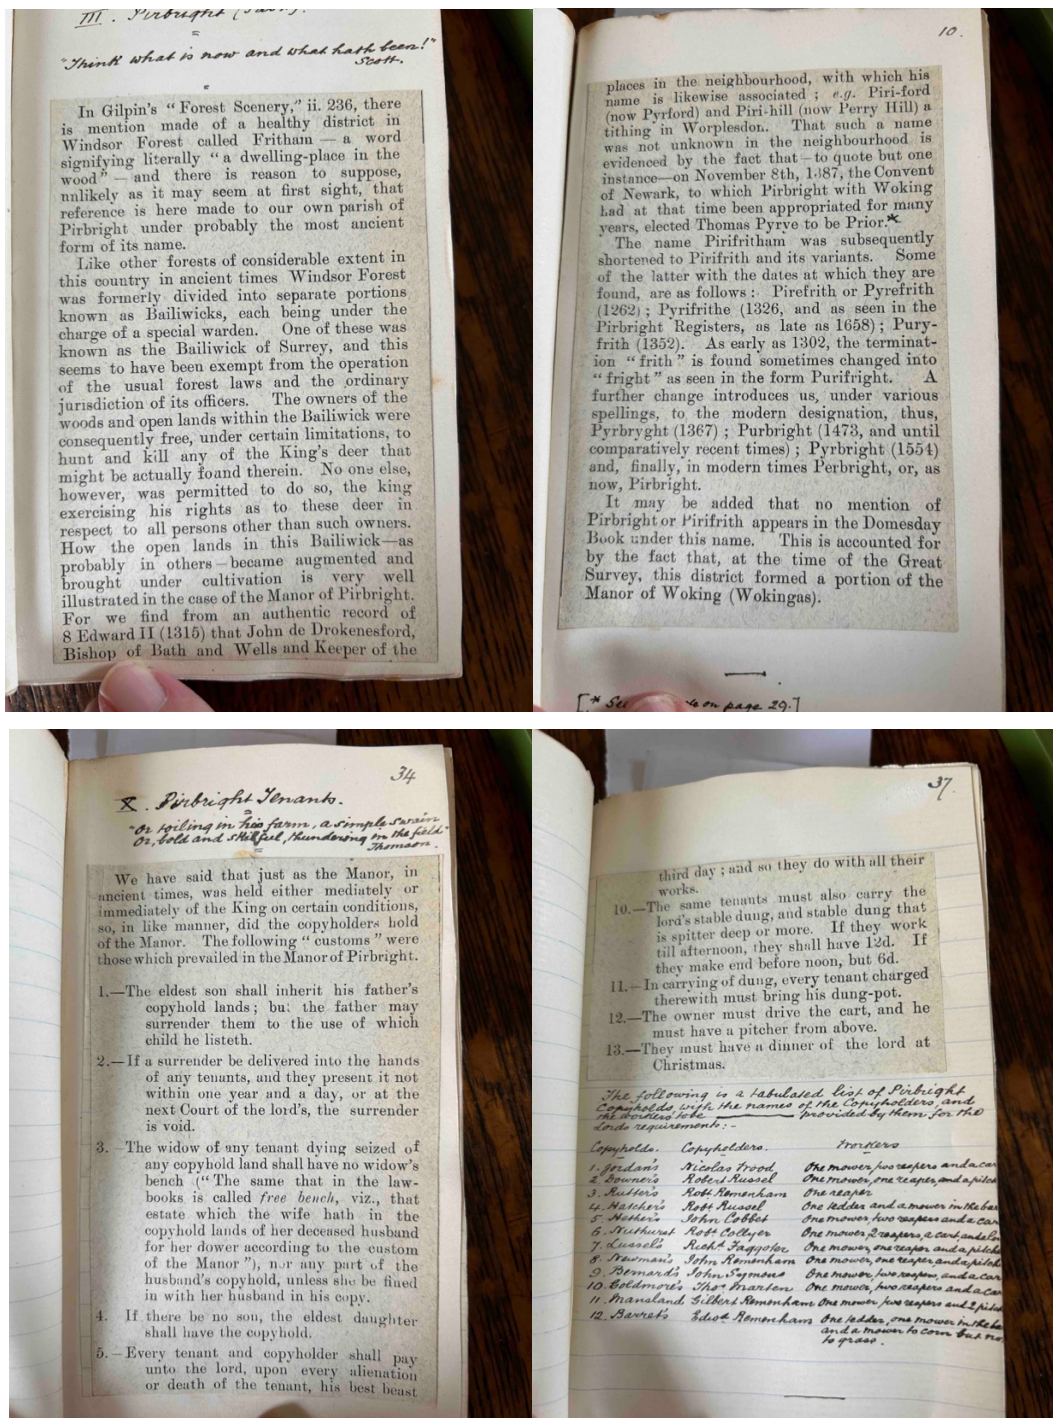 III. Pirbright
"Think what is now and what hath been!"
Scott.
In Gilpin's "Forest Scenery," ii. 236, there
is mention made of a healthy district in
Windsor Forest called Fritham — a word
signifying literally "a dwelling-place in the
wood" — and there is reason to suppose,
unlikely as it may seem at first sight, that
reference is here made to our own parish of
Pirbright under probably the most ancient
form of its name.
Like other forests of considerable extent in
this country in ancient times Windsor Forest
was formerly divided into separate portions
known as Bailiwicks, each being under the
charge of a special warden. One of these was
known as the Bailiwick of Surrey, and this
seems to have been exempt from the operation
of the usual forest laws and the ordinary
jurisdiction of its officers. The owners of the
woods and open lands within the Bailiwick were
consequently free, under certain limitations, to
hunt and kill any of the King's deer that
might be actually found therein. No one else,
however, was permitted to do so, the king
exercising his rights as to these deer in
respect to all persons other than such owners.
How the open lands in this Bailiwick—as
probably in others—became augmented and
brought under cultivation is very well
illustrated in the case of the Manor of Pirbright.
For we find from an authentic record of
8 Edward II (1315) that John de Drokenesford,
Bishop of Bath and Wells and Keeper of the
10.
places in the neighbourhood, with which his
name is likewise associated; e.g. Piri-ford
(now Pyrford) and Piri-hill (now Perry Hill) a
tithing in Worplesdon. That such a name
was not unknown in the neighbourhood is
evidenced by the fact that—to quote but one
instance—on November 8th, 1387, the Convent
of Newark, to which Pirbright with Woking
had at that time been appropriated for many
years, elected Thomas Pyrye to be Prior.*
The name Pirifritham was subsequently
shortened to Pirifrith and its variants. Some
of the latter with the dates at which they are
found, are as follows: Pirefrith or Pyrefrith
(1262); Pyrifrithe (1326, and as seen in the
Pirbright Registers, as late as 1658); Pury-
frith (1352). As early as 1302, the terminat-
ion "frith" is found sometimes changed into
"fright" as seen in the form Purifright. A
further change introduces us, under various
spellings, to the modern designation, thus,
Pyrbryght (1367); Purbright (1473, and until
comparatively recent times); Pyrbright (1554)
and, finally, in modern times Perbright, or, as
now, Pirbright.
It may be added that no mention of
Pirbright or Pirifrith appears in the Domesday
Book under this name. This is accounted for
by the fact that, at the time of the Great
Survey, this district formed a portion of the
Manor of Woking (Wokingas).
[* on page 29.]
34
X. Pirbright Tenants.
"Or toiling in his farm, a simple swain
Or, bold and skilful, thundering in the field"
Thomson.
We have said that just as the Manor, in
ancient times, was held either mediately or
immediately of the King on certain conditions,
so, in like manner, did the copyholders hold
of the Manor. The following "customs" were
those which prevailed in the Manor of Pirbright.
1.—The eldest son shall inherit his father's
copyhold lands; but the father may
surrender them to the use of which
child he listeth.
2.—If a surrender be delivered into the hands
of any tenants, and they present it not
within one year and a day, or at the
next Court of the lord's, the surrender
is void.
3. —The widow of any tenant dying seized of
any copyhold land shall have no widow's
bench ("The same that in the law-
books is called free bench, viz., that
estate which the wife hath in the
copyhold lands of her deceased husband
for her dower according to the custom
of the Manor"), nor any part of the
husband's copyhold, unless she be fined
in with her husband in his copy.
4. If there be no son, the eldest daughter
shall have the copyhold.
5.—Every tenant and copyholder shall pay
unto the lord, upon every alienation
or death of the tenant, his best beast
37.
third day; and so they do with all their
works.
10.—The same tenants must also carry the
lord's stable dung, and stable dung that
is spitter deep or more. If they work
till afternoon, they shall have 12d. If
they make end before noon, but 6d.
11.—In carrying of dung, every tenant charged
therewith must bring his dung-pot.
12.—The owner must drive the cart, and he
must have a pitcher from above.
13.—They must have a dinner of the lord at
Christmas.
The following is a tabulated list of Pirbright
Copyholds, with the names of the Copyholders, and
the workers to be provided by them for the
Lords requirements:-
Copyholds. Copyholders. Workers
1. Jordan's Nicolas Frood One mower, two reapers and a car
2 Downer's Robert Russel One mower, one reaper, and a pitch
3. Rutter's Robt Remenham One reaper
4. Hatcher's Robt Russel One tedder and a mower in the bar
5 Hether's John Cobbet One mower, two reapers and a car
6. Nuthurst Robt Collyer One mower, 2 reapers, a cart, and
7. Lussel's Richd Faggoter One mower, one reaper and a pitch
8. Newman's John Remenham One mower, one reaper, and a pitch
9. Bernard's John Symons One mower, two reapers, and a car
10. Goldmore's Thos Marten One mower, two reapers and a car
11. Manaland Gilbert Remenham One mower, two reapers and 2 pitch
12. Barret's Edwd Remenham One tedder, one mower in the
and a mower to corn but no
to grass.